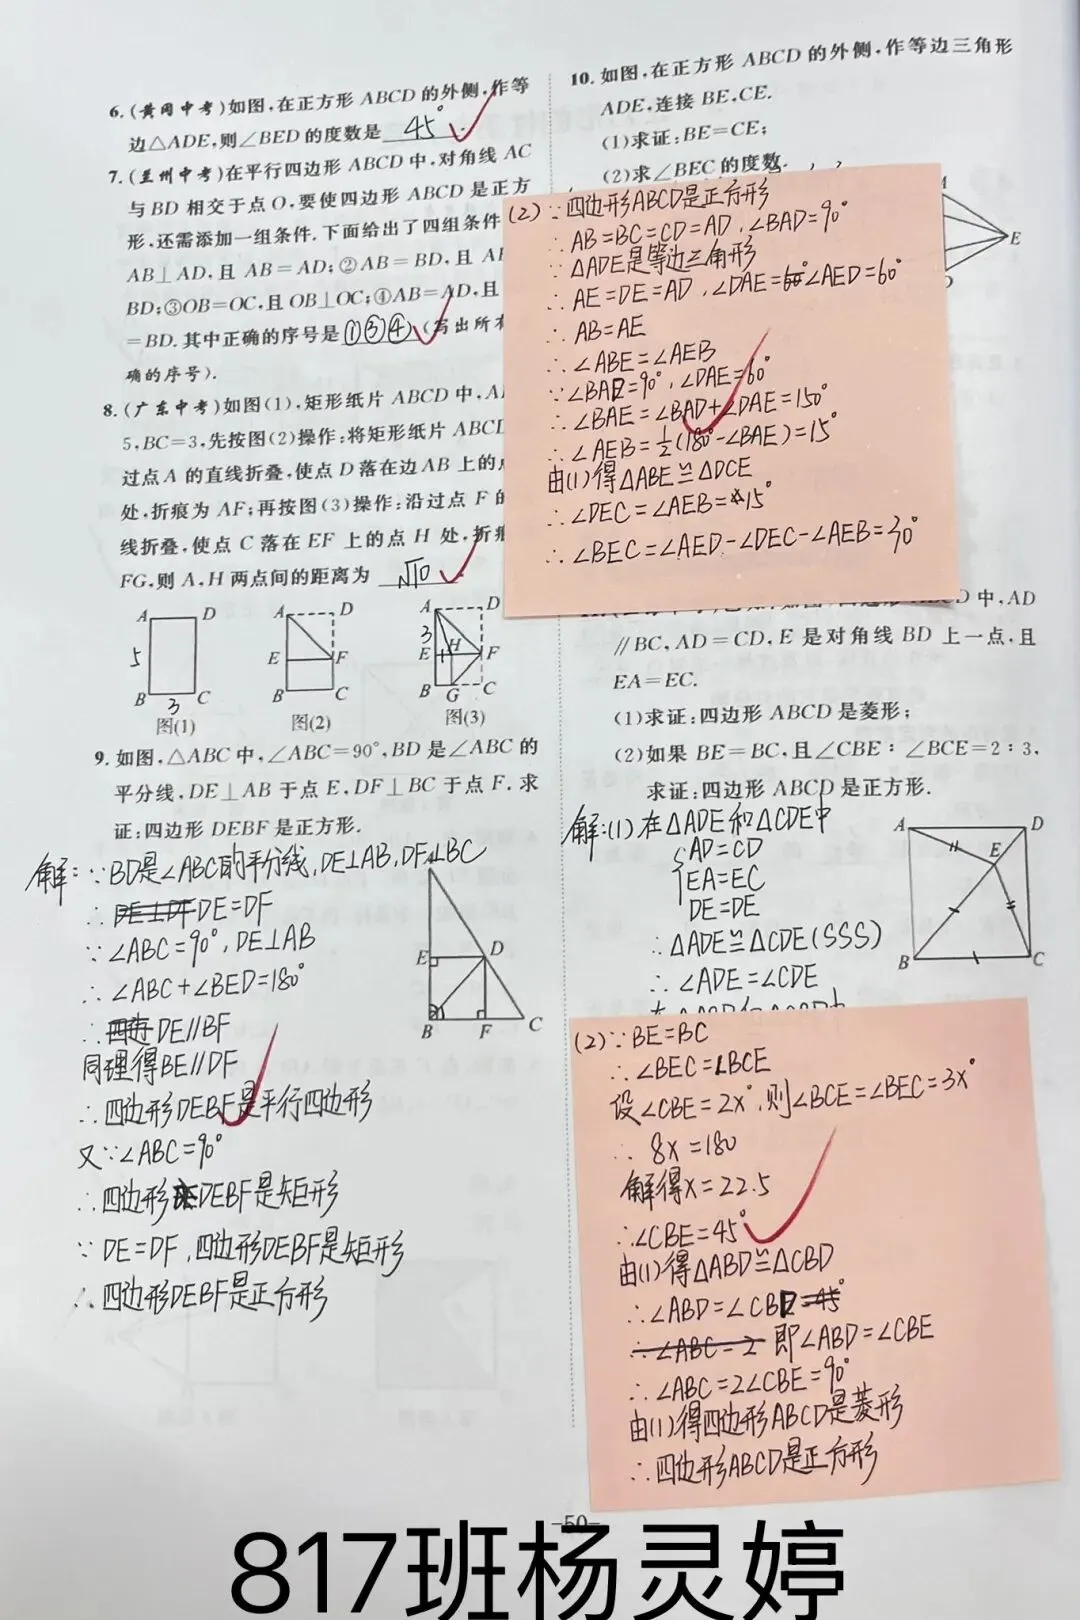 6.(黄冈中考)如图,在正方形 ABCD 的外侧,作等
边△ADE,则∠BED的度数是 45°.
7.(兰州中考)在平行四边形 ABCD 中,对角线 AC
与BD 相交于点O,要使四边形 ABCD 是正方
形,还需添加一组条件.下面给出了四组条件
AB⊥AD,且 AB=AD;②AB=BD,且 AB
BD;③OB=OC,且 OB⊥OC;④AB=AD,且
=BD.其中正确的序号是①③④(写出所有
确的序号).
8.(广东中考)如图(1),矩形纸片 ABCD 中,A
5,BC=3,先按图(2)操作:将矩形纸片 ABCD
过点A 的直线折叠,使点 D 落在边 AB 上的
处,折痕为 AF;再按图(3)操作:沿过点 F 的
线折叠,使点 C 落在 EF 上的点 H 处,折痕
FG,则 A,H 两点间的距离为 √10.
A D
5
B 3 C
图(1)
A D
E F
B C
图(2)
A D
3
E H F
B G C
图(3)
9.如图,△ABC 中,∠ABC=90°,BD 是∠ABC 的
平分线,DE⊥AB 于点 E,DF⊥BC 于点 F.求
证:四边形 DEBF 是正方形.
解:∵BD是∠ABC的平分线,DE⊥AB,DF⊥BC
∴DE=DF
∵∠ABC=90°,DE⊥AB
∴∠ABC+∠BED=180°
∴DE//BF
同理得BE//DF
∴四边形DEBF是平行四边形
又∵∠ABC=90°
∴四边形DEBF是矩形
∵DE=DF,四边形DEBF是矩形
∴四边形DEBF是正方形
E D
B F C
10.如图,在正方形 ABCD 的外侧,作等边三角形
ADE,连接 BE,CE.
(1)求证:BE=CE;
(2)求∠BEC的度数.
E
(2)∵四边形ABCD是正方形
∴AB=BC=CD=AD,∠BAD=90°
∵△ADE是等边三角形
∴AE=DE=AD,∠DAE=∠AED=60°
∴AB=AE
∴∠ABE=∠AEB
∵∠BAD=90°,∠DAE=60°
∴∠BAE=∠BAD+∠DAE=150°
∴∠AEB=½(180°-∠BAE)=15°
由(1)得△ABE≌△DCE
∴∠DEC=∠AEB=15°
∴∠BEC=∠AED-∠DEC-∠AEB=30°
中,AD
∥BC,AD=CD,E 是对角线 BD 上一点,且
EA=EC.
(1)求证:四边形 ABCD 是菱形;
(2)如果 BE=BC,且∠CBE∶∠BCE=2∶3,
求证:四边形 ABCD 是正方形.
解:(1)在△ADE和△CDE中
AD=CD
EA=EC
DE=DE
∴△ADE≌△CDE(SSS)
∴∠ADE=∠CDE
A D
E
B C
(2)∵BE=BC
∴∠BEC=∠BCE
设∠CBE=2x°,则∠BCE=∠BEC=3x°
∴8x=180
解得x=22.5
∴∠CBE=45°
由(1)得△ABD≌△CBD
∴∠ABD=∠CBD
即∠ABD=∠CBE
∴∠ABC=2∠CBE=90°
由(1)得四边形ABCD是菱形
∴四边形ABCD是正方形
-50-
817班杨灵婷